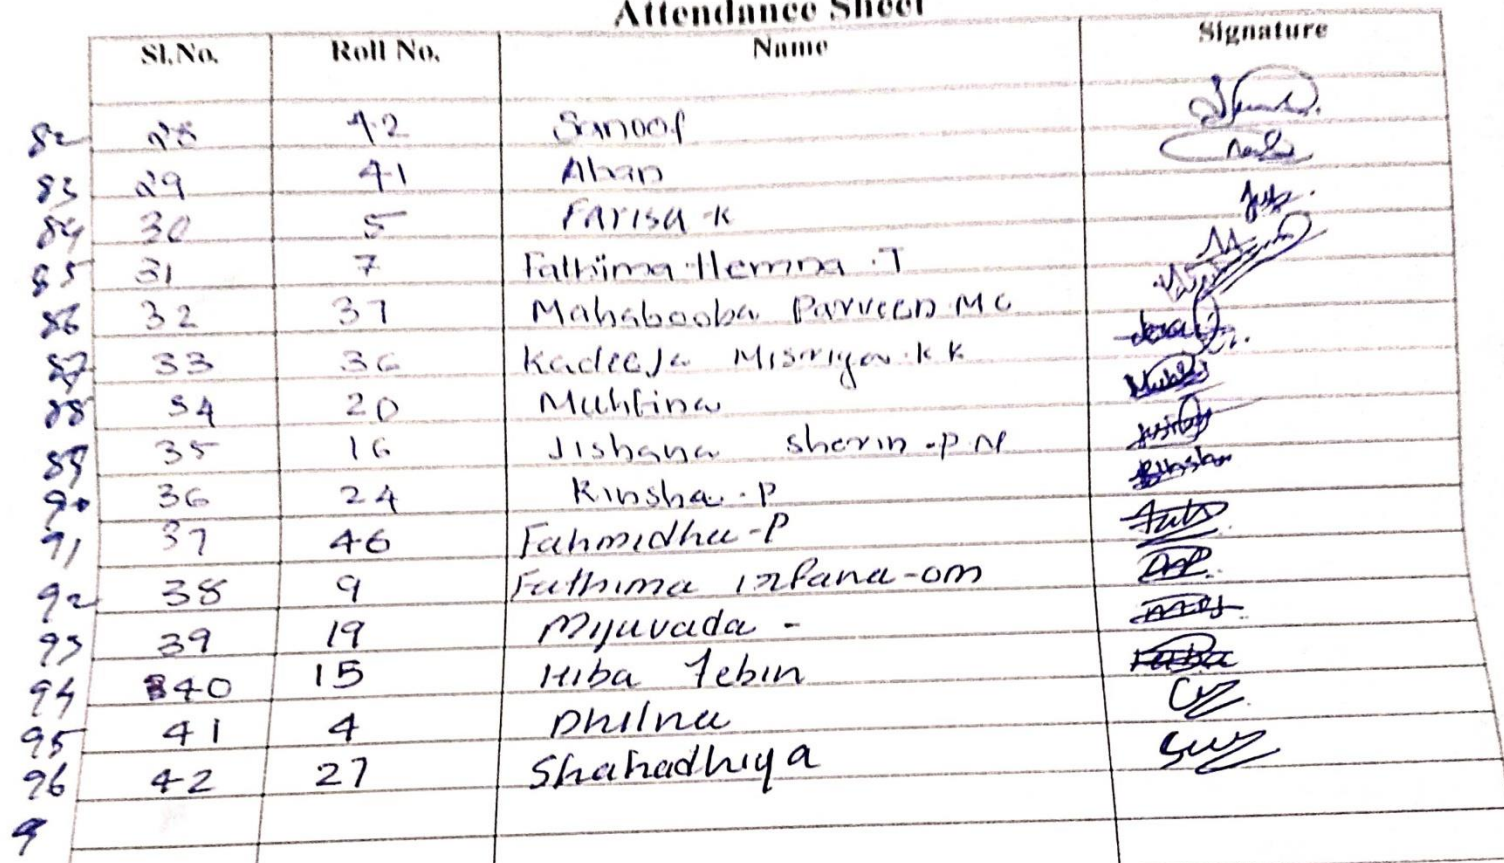 Attendance Sheet
Sl.No. Roll No. Name Signature
82 28 42 Sanoof
83 29 41 Ahan
84 30 5 Farisa K
85 31 7 Fathima Hemna .T
86 32 37 Mahabooba Parveen MC
87 33 36 Kadeeja Misriya.KK
88 34 20 Muhsina
89 35 16 Jishana sherin -P.M
90 36 24 Rinsha.P
91 37 46 Fahmidha-P
92 38 9 Fathima irfana-om
93 39 19 Myuvada -
94 40 15 Hiba Febin
95 41 4 Dhilna
96 42 27 Shahadhiya
9